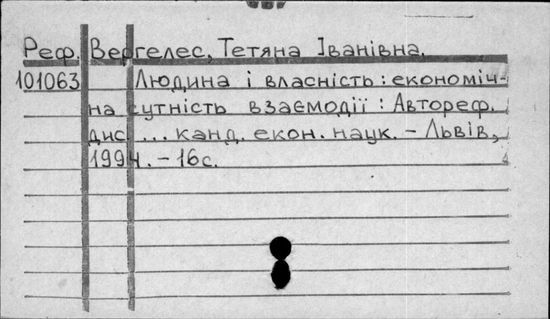 Реф. Вергелес, Тетяна Іванівна.
101063 Людина і власність: економіч-
на сутність взаємодії: Автореф.
дис. ... канд. екон. наук. - Львів,
1994. - 16с.